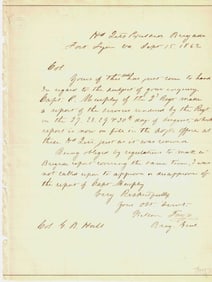 Hd Qrs Excelsior Brigade
Fort Lyon Va Sept 15. 1862
Col
Yours of this date has just come to hand
In regard to the subject of your enquiry
Capt. Murphy of the 2d Regt made
a report of the service rendered by the Regt
in the 27, 28, 29 & 30th day of August, which
report is now on file in the office at
these Hd Qrs just as it was received.
Being obliged by regulations to make a
Brigade report covering the same time, I was
not called upon to approve or disapprove of
the report of Capt Murphy
Very Respectfully
Your Obt Servt.
Nelson Taylor
Col. G. B. Hall Brig. Genl